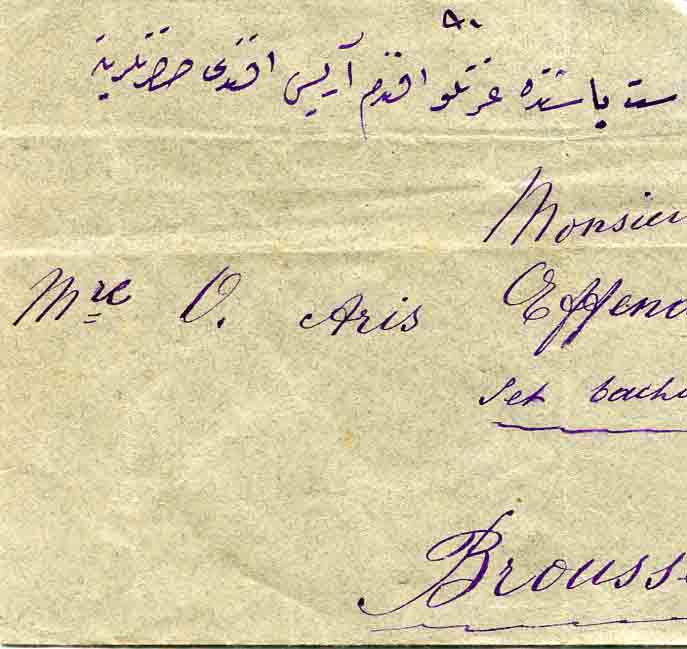 ست باشنده عزتلو افندم آریس افندی حضرتلرینه
Monsieu
Mre O. Aris Effend
Set bach
Brousse